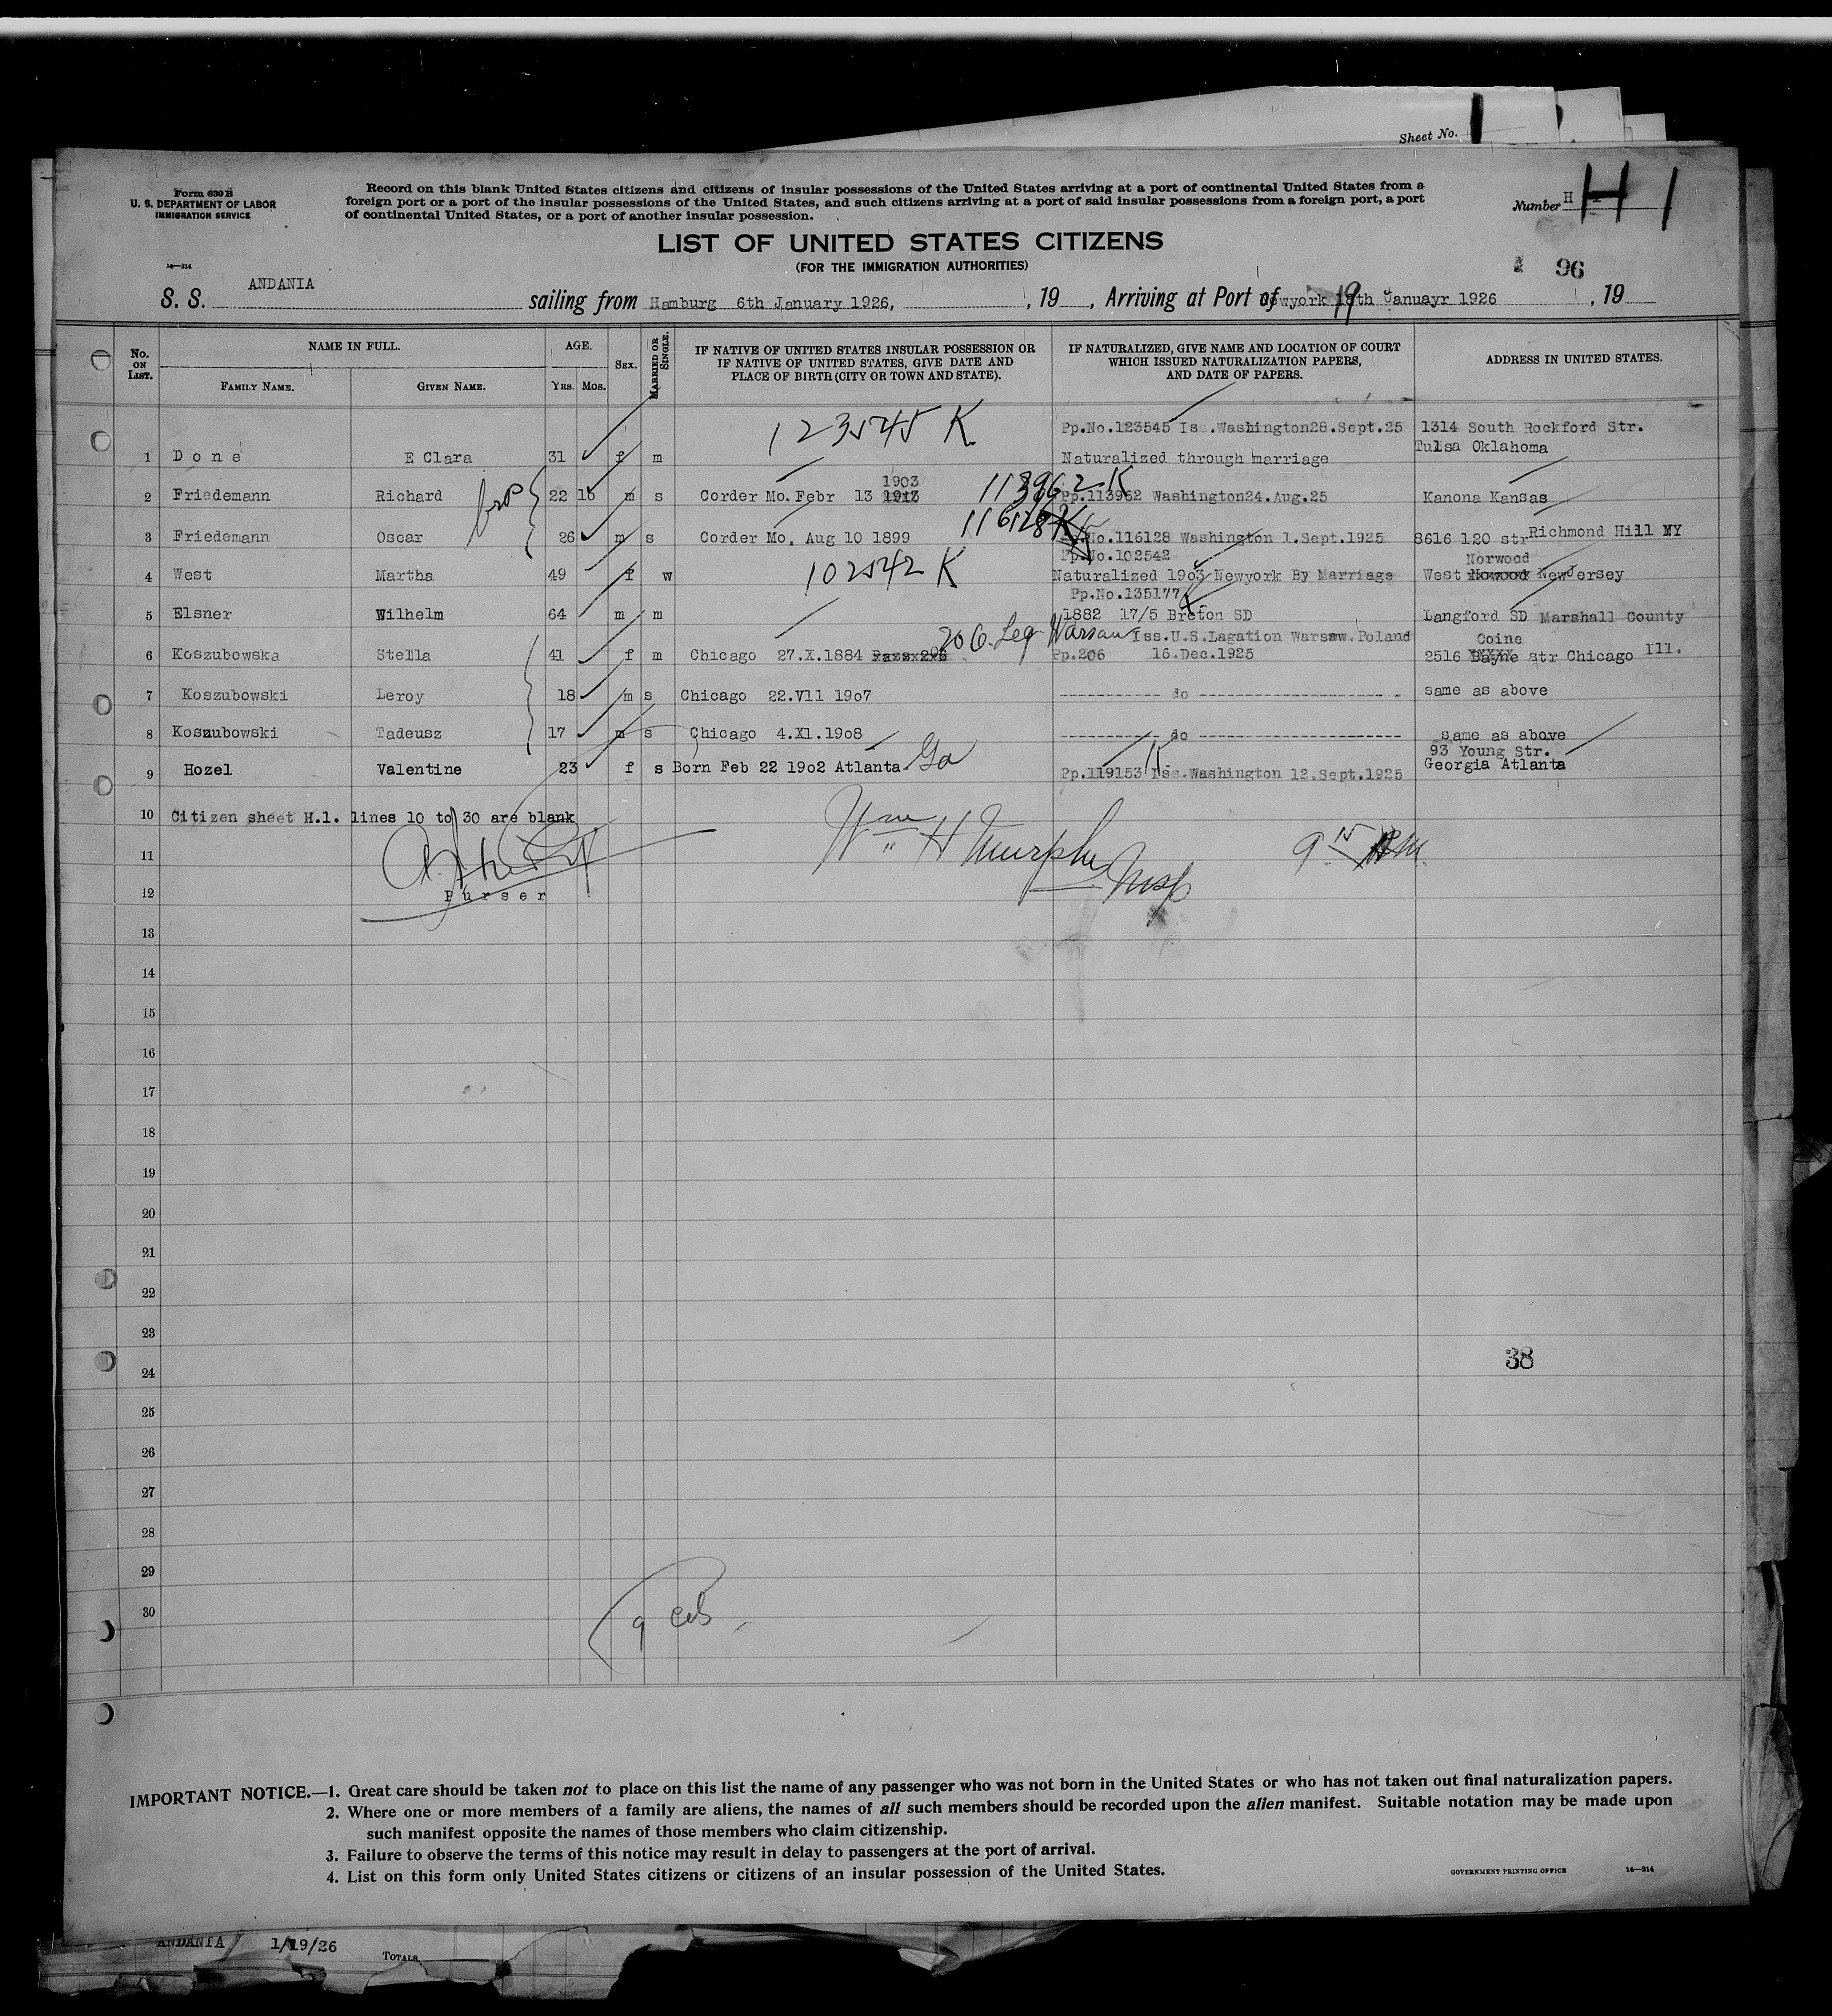 Sheet No. 1
Form 630 B
U. S. DEPARTMENT OF LABOR
IMMIGRATION SERVICE
Record on this blank United States citizens and citizens of insular possessions of the United States arriving at a port of continental United States from a
foreign port or a port of the insular possessions of the United States, and such citizens arriving at a port of said insular possessions from a foreign port, a port
of continental United States, or a port of another insular possession.
Number H H 1
LIST OF UNITED STATES CITIZENS
(FOR THE IMMIGRATION AUTHORITIES)
14—214
96
S. S. ANDANIA sailing from Hamburg 6th January 1926, , 19 , Arriving at Port of Newyork 19th Januayr 1926 , 19
No. ON LIST.
NAME IN FULL.
FAMILY NAME.
GIVEN NAME.
AGE.
YRS.
MOS.
SEX.
MARRIED OR SINGLE.
IF NATIVE OF UNITED STATES INSULAR POSSESSION OR
IF NATIVE OF UNITED STATES, GIVE DATE AND
PLACE OF BIRTH (CITY OR TOWN AND STATE).
IF NATURALIZED, GIVE NAME AND LOCATION OF COURT
WHICH ISSUED NATURALIZATION PAPERS,
AND DATE OF PAPERS.
ADDRESS IN UNITED STATES.
123545 K Pp.No.123545 Iss.Washington28.Sept.25 1314 South Rockford Str.
Tulsa Oklahoma
1 Done E Clara 31 f m Naturalized through marriage
1903
2 Friedemann Richard bro 22 10 m s Corder Mo. Febr 13 1913 113962 K Pp.113962 Washington24.Aug.25 Kanona Kansas
3 Friedemann Oscar 26 m s Corder Mo. Aug 10 1899 116128 K Pp.No.116128 Washington 1.Sept.1925 8616 120 str Richmond Hill NY
Pp.No.102542 Norwood
4 West Martha 49 f w 102542 K Naturalized 1903 Newyork By Marriage West Nowood NewJersey
Pp.No.135177 K
5 Elsner Wilhelm 64 m m 1882 17/5 Breton SD Langford SD Marshall County
206. Leg Warsaw Iss.U.S.Lagation Warsaw.Poland Coine
6 Koszubowska Stella 41 f m Chicago 27.X.1884 Pp.206 16.Dec.1925 2516 Dayne str Chicago Ill.
7 Koszubowski Leroy 18 m s Chicago 22.Vll 1907 do same as above
8 Koszubowski Tadeusz 17 m s Chicago 4.Xl.1908 do same as above
93 Young Str.
9 Hozel Valentine 23 f s Born Feb 22 1902 Atlanta Ga Pp.119153 K Iss.Washington 12.Sept.1925 Georgia Atlanta
10 Citizen sheet H.1. lines 10 to 30 are blank
11 Wm H Murphy Insp 9 15 AM
12 Purser
13
14
15
16
17
18
19
20
21
22
23
24 38
25
26
27
28
29
30
9
IMPORTANT NOTICE.—1. Great care should be taken not to place on this list the name of any passenger who was not born in the United States or who has not taken out final naturalization papers.
2. Where one or more members of a family are aliens, the names of all such members should be recorded upon the alien manifest. Suitable notation may be made upon
such manifest opposite the names of those members who claim citizenship.
3. Failure to observe the terms of this notice may result in delay to passengers at the port of arrival.
4. List on this form only United States citizens or citizens of an insular possession of the United States.
GOVERNMENT PRINTING OFFICE 14—214
ANDANIA 1/19/26 TOTALS